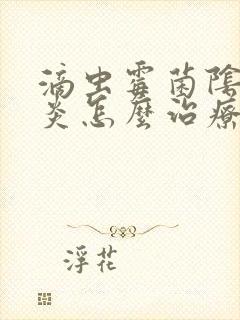 滴虫霉菌陰
炎怎麼治療
浮花